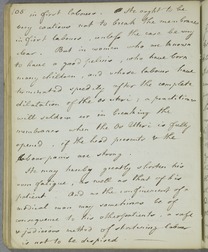 106
in first labours. He ought to be
very cautious not to break the membranes
in first labours, unless the case be very
clear. But in women who are known
to have a good pelvis, who have born
many children, and whose labours have
terminated speedily after the complete
dilatation of the os uteri; a practitioner
will seldom err in breaking the
membranes when the Os Uteri is fully
opened, if the head presents & the
labour pains are strong.
He may hereby greatly shorten his
own fatigue, as well as that of his
patient and as the confinement of a
medical man may sometimes be of
consequence to his other patients, a safe
& judicious method of shortening labour
is not to be despised